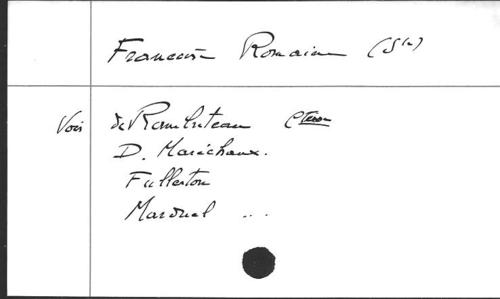 Françoise Romaine (Ste)
Voir de Rambuteau Ctesse
D. Maréchaux.
Fullerton
Marduel ...